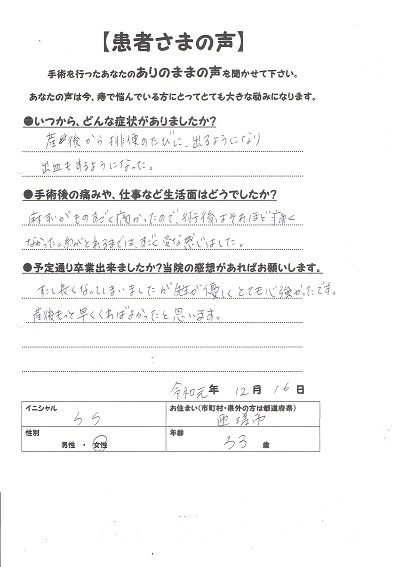 【患者さまの声】
手術を行ったあなたのありのままの声を聞かせて下さい。
あなたの声は今、痔で悩んでいる方にとってとても大きな励みになります。
●いつから、どんな症状がありましたか？
産後から排便のたびに、出るようになり
出血もするようになった。
●手術後の痛みや、仕事など生活面はどうでしたか？
麻すいがものすごく痛かったので、術後はそれほど痛く
なかった。糸がとれるまでは、すごく変な感じでした。
●予定通り卒業出来ましたか？当院の感想があればお願いします。
すこし長くなってしまいましたが先生が優しくとても心強かったです。
産後もっと早くくればよかったと思います。
令和元年 12月 16日
イニシャル
S S
お住まい（市町村・県外の方は都道府県）
匝瑳市
性別
男性 ・ 女性
年齢
33 歳